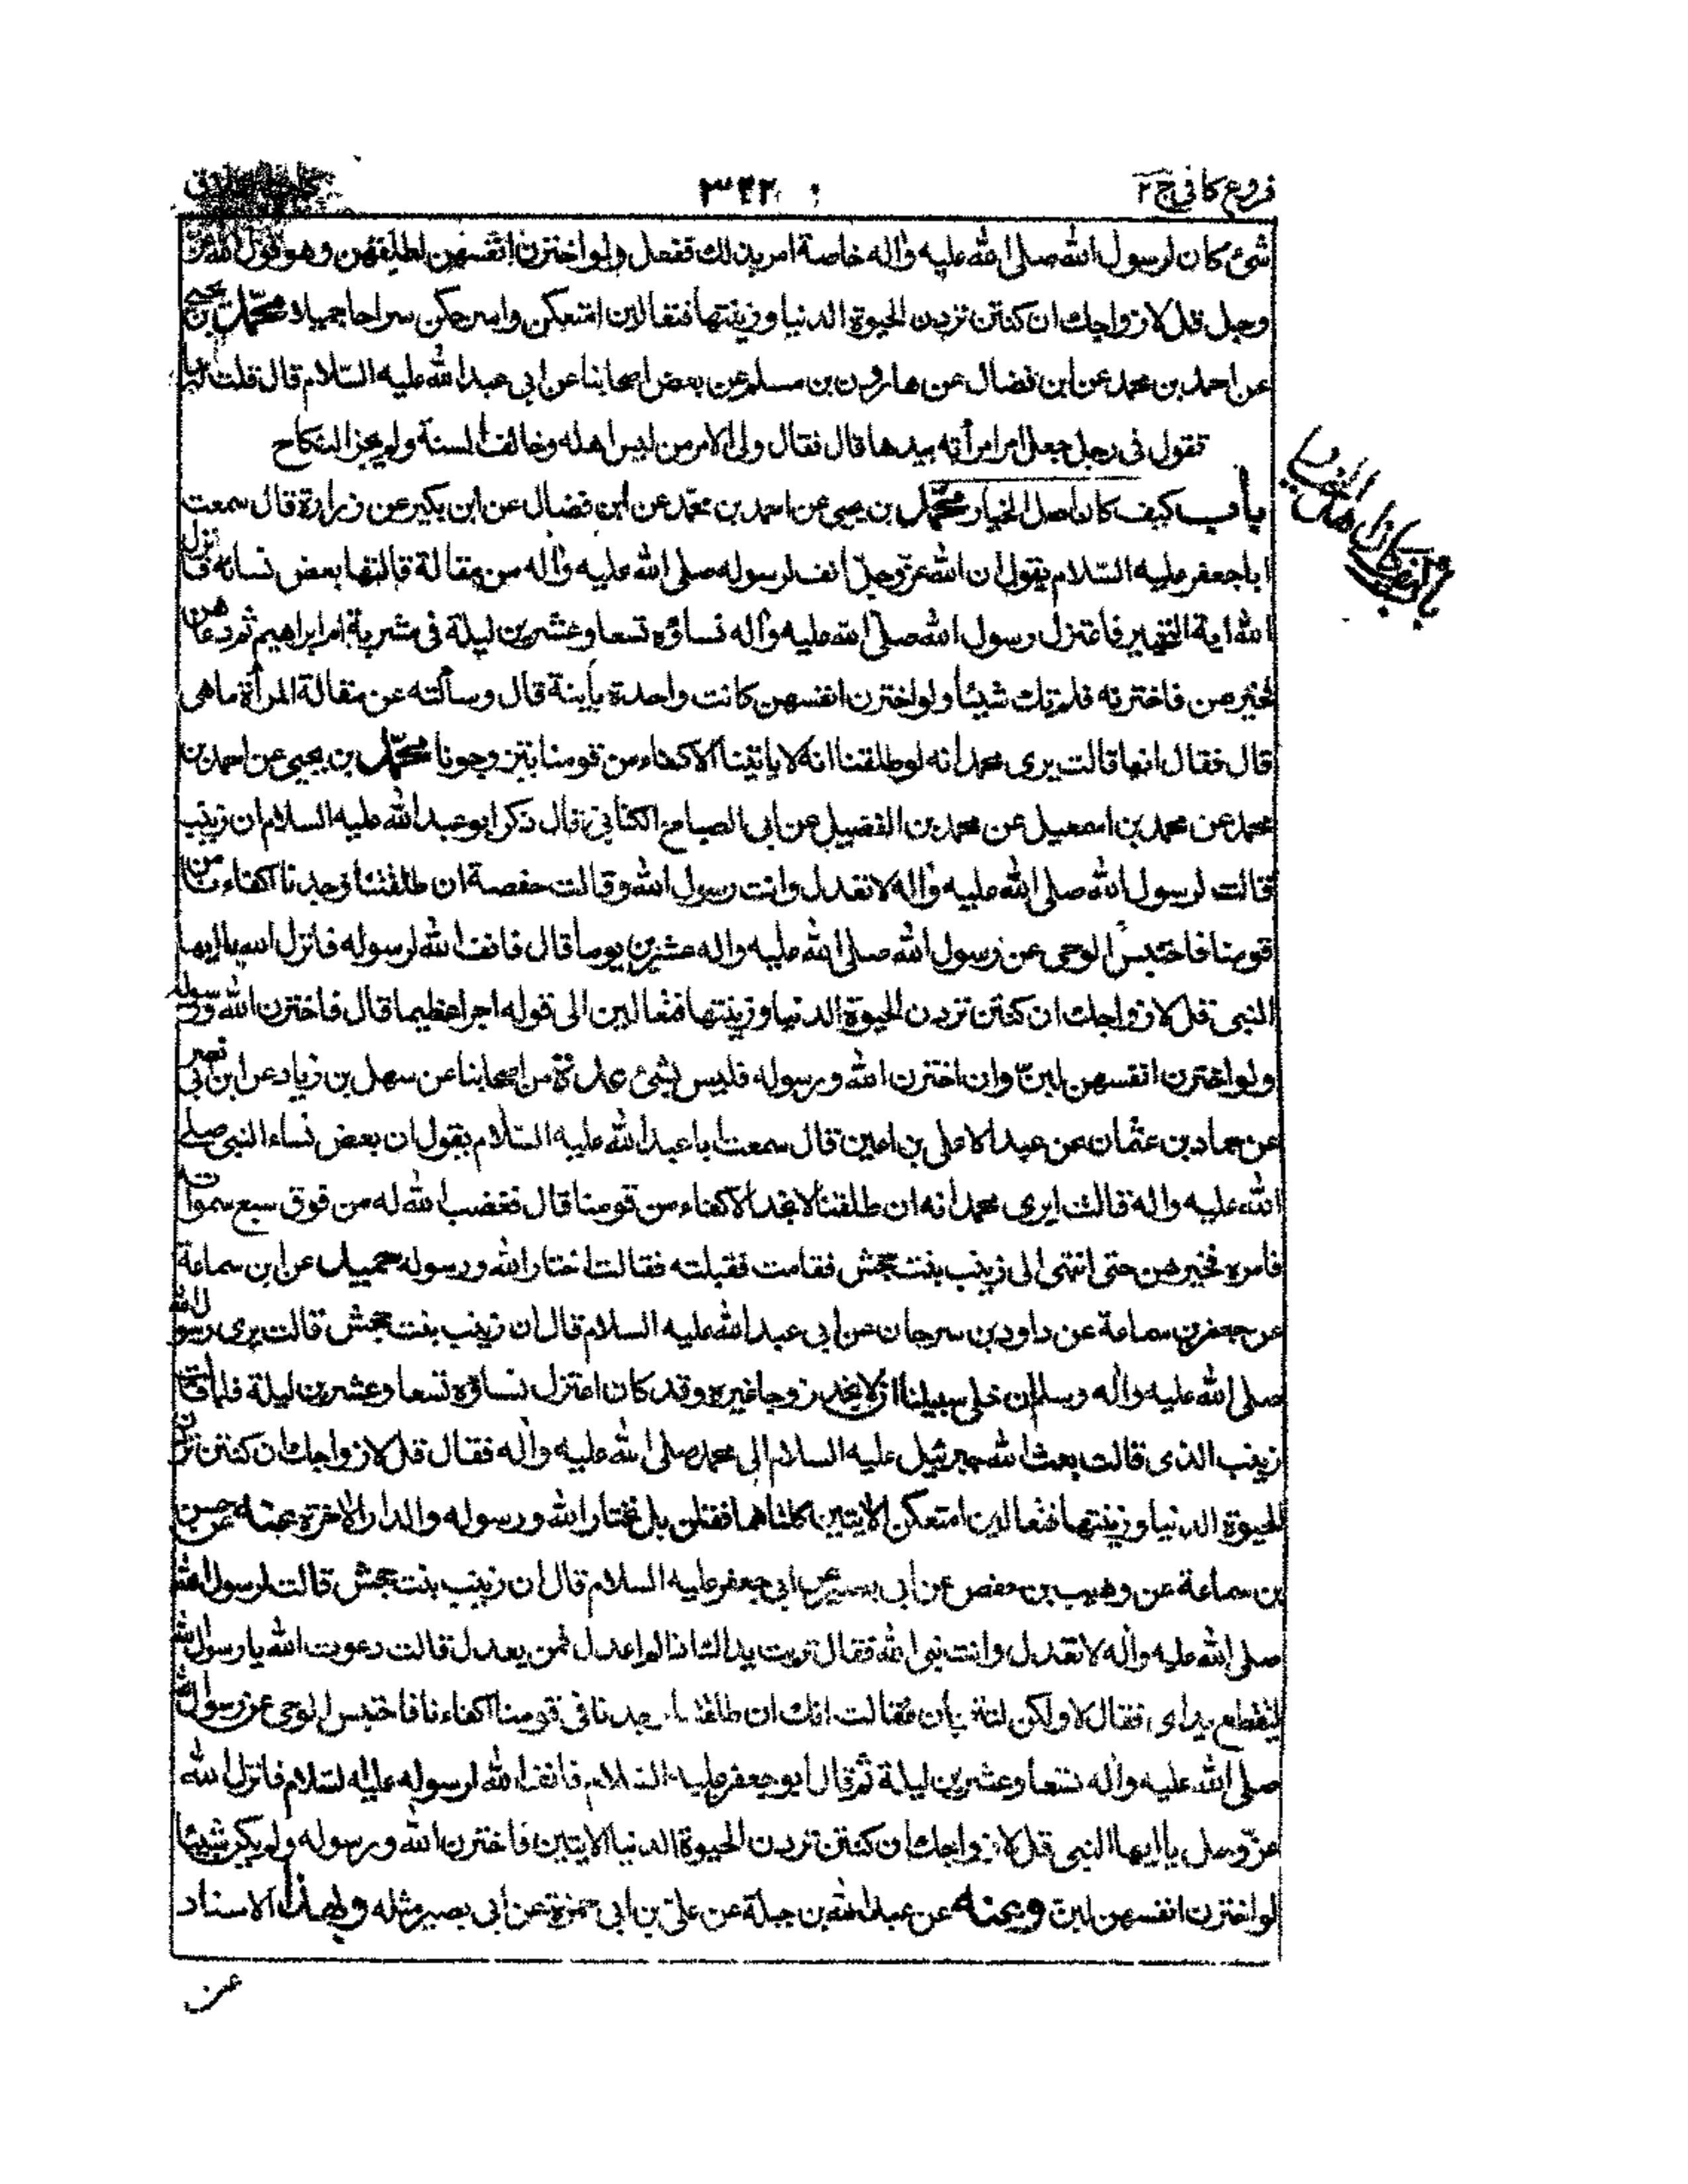 فروع كافى ج٢
٣٤٢
شئ كان لرسول الله صلى الله عليه واله خاصة امر بذلك ففعل ولو اخترن انفسهن لطلقهن وهو قول الله عز
وجل قل لازواجك ان كنتن تردن الحيوة الدنيا وزينتها فتعالين امتعكن واسرحكن سراحا جميلا محمد بن يحيى
عن احمد بن محمد عن ابن فضال عن هارون بن مسلم عن بعض اصحابنا عن ابى عبد الله عليه السلام قال قلت له ما
تقول فى رجل جعل امر امرأته بيدها قال فقال ولى الامر من ليس اهله وخالف السنة ولم يجز النكاح
باب كيف كان اصل الخيار محمد بن يحيى عن احمد بن محمد عن ابن فضال عن ابن بكير عن زرارة قال سمعت
ابا جعفر عليه السلام يقول ان الله عز وجل انف لرسوله صلى الله عليه واله من مقالة قالتها بعض نسائه فانزل
الله اية التخيير فاعتزل رسول الله صلى الله عليه واله نساؤه تسعا وعشرين ليلة فى مشربة ام ابراهيم ثم دعاهن
فخيرهن فاخترنه فلم تك شيئا ولو اخترن انفسهن كانت واحدة بأينة قال وسألته عن مقالة المرأة ما هى
قال فقال انها قالت يرى محمد انه لو طلقنا انه لا ياتينا الاكفاء من قومنا يتزوجونا محمد بن يحيى عن احمد بن
محمد عن محمد بن اسمعيل عن محمد بن الفضيل عن ابى الصباح الكنانى قال ذكر ابو عبد الله عليه السلام ان زينب
قالت لرسول الله صلى الله عليه واله لا تعدل وانت رسول الله وقالت حفصة ان طلقتنا وجدنا اكفاءنا من
قومنا فاحتبس الوحى عن رسول الله صلى الله عليه واله عشرين يوما قال فانف الله لرسوله فانزل الله يا ايها
النبى قل لازواجك ان كنتن تردن الحيوة الدنيا وزينتها فتعالين الى قوله اجرا عظيما قال فاخترن الله ورسوله
ولو اخترن انفسهن لبن وان اخترن الله ورسوله فليس بشئ عدة من اصحابنا عن سهل بن زياد عن ابن ابى نصر
عن حماد بن عثمان عن عبد الاعلى بن اعين قال سمعت ابا عبد الله عليه السلام يقول ان بعض نساء النبى صلى
الله عليه واله قالت ايرى محمد انه ان طلقنا لا نجد الاكفاء من قومنا قال فغضب الله له من فوق سبع سموات
فامره فخيرهن حتى انتهى الى زينب بنت جحش فقامت فقبلته فقالت اختار الله ورسوله حميد عن ابن سماعة
عن جعفر بن سماعة عن داود بن سرحان عن ابى عبد الله عليه السلام قال ان زينب بنت جحش قالت يرى رسول الله
صلى الله عليه واله وسلم ان خلى سبيلنا ان لا نجد زوجا غيره وقد كان اعتزل نساؤه تسعا وعشرين ليلة فلما قالت
زينب الذى قالت بعث الله جبرئيل عليه السلام الى محمد صلى الله عليه واله فقال قل لازواجك ان كنتن تردن
الحيوة الدنيا وزينتها فتعالين امتعكن الايتين كلتاهما فقلن بل نختار الله ورسوله والدار الاخرة عنه عن حسن
بن سماعة عن وهيب بن حفص عن ابى بصير عن ابى جعفر عليه السلام قال ان زينب بنت جحش قالت لرسول الله
صلى الله عليه واله لا تعدل وانت نبى الله فقال تربت يداك اذا لم اعدل فمن يعدل قالت دعوت الله يا رسول الله
ليقطع يداى فقال لا ولكن لتتربان فقالت انك ان طلقتنا وجدنا فى قومنا اكفاءنا فاحتبس الوحى عن رسول الله
صلى الله عليه واله تسعا وعشرين ليلة ثم قال ابو جعفر عليه السلام فانف الله لرسوله عليه السلام فانزل الله
عز وجل يا ايها النبى قل لازواجك ان كنتن تردن الحيوة الدنيا الايتين فاخترن الله ورسوله ولم يكن شيئا
لو اخترن انفسهن لبن وعنه عن عبد الله بن جبلة عن على بن ابى حمزة عن ابى بصير مثله وبهذا الاسناد
عن